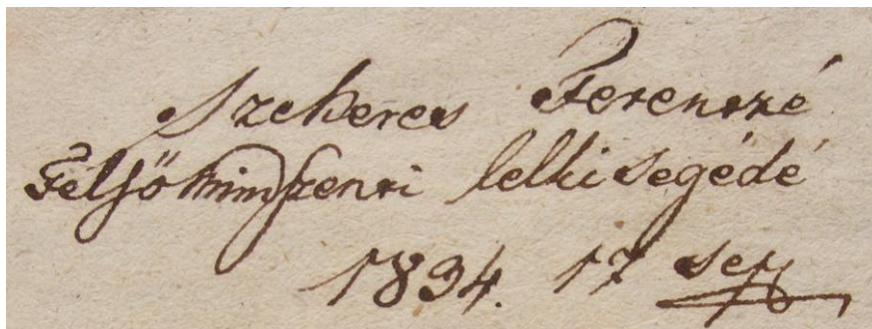 Szekeres Ferenczé
Felsőmindszenti lelki segédé
1834. 17 sep